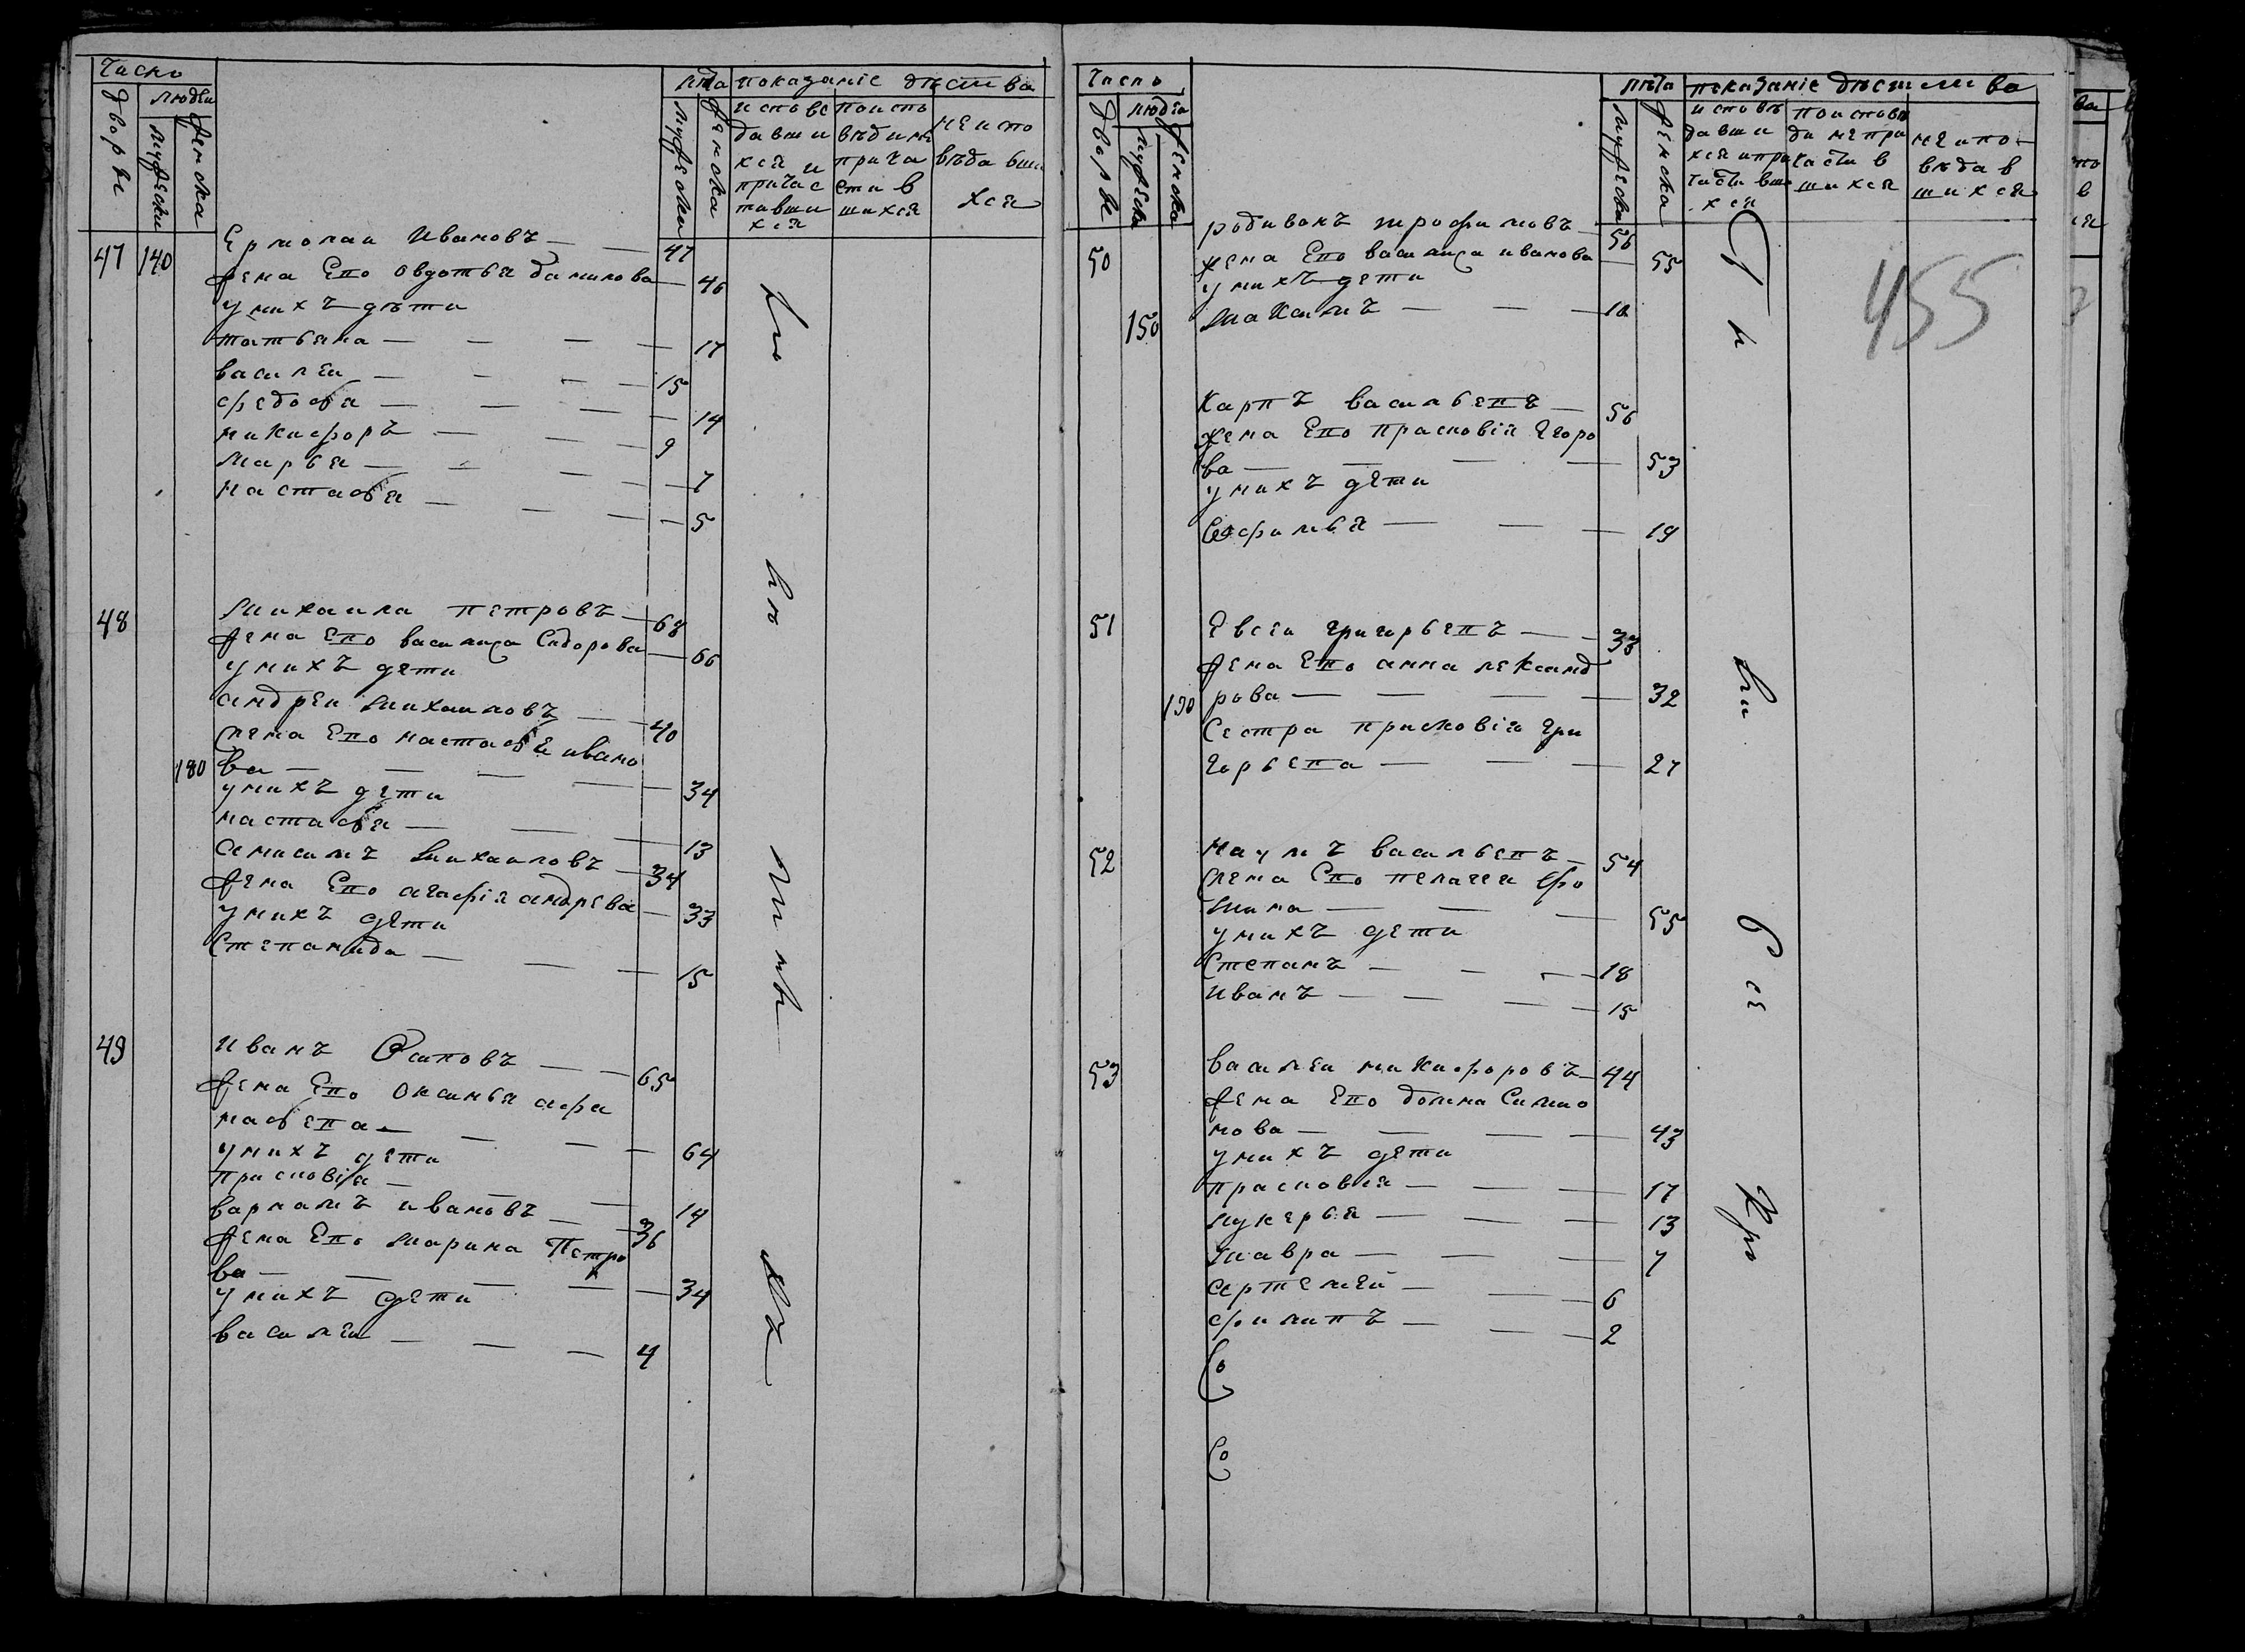 Число
людеи
дворы
мужескн
женска
лѣта показаніе дѣства
мужески
женска
исповѣ
давши
хся и
причас
тивши
хся
поиспо
вѣдини
прича
стив
шихся
неиспо
вѣдавши
хся
47 140 Ермолаи Ивановъ 47
жена Его овдотья данилова 46
у нихъ дѣти
татьяна 17
василеи 15
федосья 14
никифоръ 9
марья 7
настасья 5
48 михаила петровъ 68
жена Его василиса Сидорова 66
у нихъ дети
андреи михаиловъ 40
жена Его настасья ивано
180 ва 34
у нихъ дети
настасья 13
анисимъ михаиловъ 34
жена Его агафія андрева 33
у нихъ дети
Степанида 15
49 иванъ Осиповъ 65
жена Его оксинья афа
насьева 64
у нихъ дети
присковія 14
варламъ ивановъ 36
жена Его марина Петро
ва 34
у нихъ дети
василеи 4
Число
людеи
дворы
мужеска
женска
лѣта показаніе дѣства
мужеска
женска
исповѣ
давши
хся ипри
части вши
хся
поисповѣ
ди непри
части в
шихся
неипо
вѣдав
шихся
455
50 родивонъ трофимовъ 56
жена Его василиса иванова 55
у нихъ дети
150 Максимъ 18
Карпъ васильевъ 56
жена Его прасковія Егоро
ва 53
у нихъ дети
Софимья 19
51 Евсеи григорьевъ 33
жена Его анна лександ
190 рова 32
Сестра присковія гри
горьева 27
52 наумъ васильевъ 54
жена Его пелагея ефи
мина 55
у нихъ дети
Степанъ 18
иванъ 15
53 василеи никифоровъ 44
жена Его домна Симио
нова 43
у нихъ дети
прасковья 17
лукерья 13
мавра 7
артемеи 6
филипъ 2